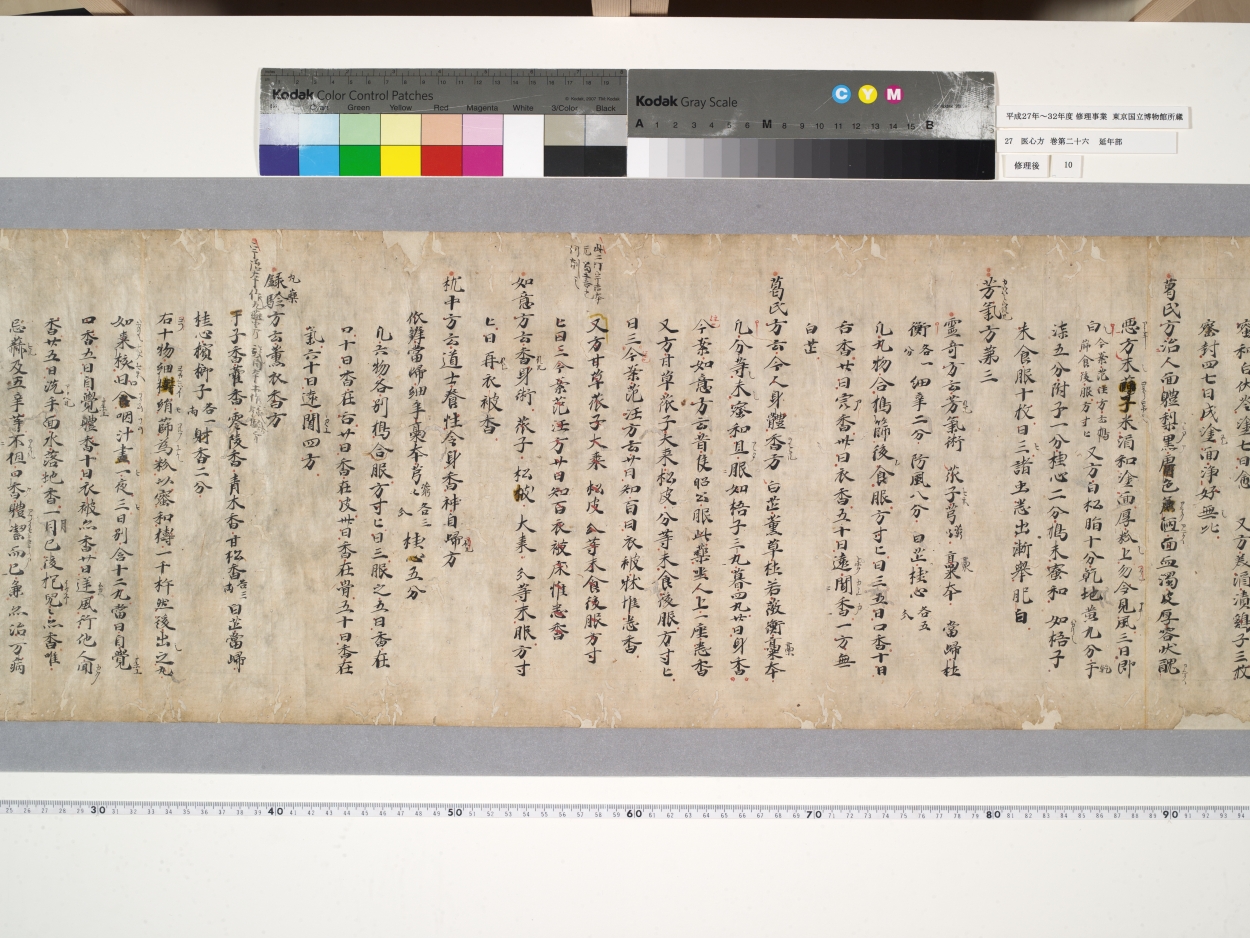 Kodak Color Control Patches
Cyan Green Yellow Red Magenta White 3/Color Black
Kodak Gray Scale
C Y M
A 1 2 3 4 5 6 M 8 9 10 11 12 13 14 15 B
平成27年～32年度 修理事業 東京国立博物館所蔵
27 医心方 巻第二十六 延年部
修理後 10
蜜封四七日戌塗面淨好無比
葛氏方治人面體梨黒膚色麁陋面血濁皮厚容状醜
悪方末 子水涓和塗面厚粉上勿令見風三日即
白 又方白松脂十分乾地黄九分
漆五分附子一分桂心二分搗末蜜和如梧子
未食服十枚日三諸虫悉出漸舉肥白
芳氣方第三
靈奇方云芳氣術 苽子 芎藭 藁本 當歸 桂
衡各一分 細辛二分 防風八分 白芷 桂心各五分
凡九物合搗篩後食服方寸匕日三五日口香十日
舌香廿日宍香卅日衣香五十日遠聞香一方無
白芷
葛氏方云令人身體香方 白芷薫草桂若敵衡藁本
凡分等末蜜和且服如梧子三丸暮四丸廿日身香
今案如意方云昔侯昭公服此藥坐人上一座悉香
又方甘草苽子大棗松皮分等末食後服方寸匕
日三今案范汪方云廿日知百日衣被状惟悉香
又方甘草苽子大棗松皮分等末食後服方寸
匕日三今案范汪方廿日知百衣被床惟悉香
如意方云香身術苽子松皮大棗分等末服方寸
匕日再衣被香
枕中方云道士養性令身香神自歸方
依辨當歸細辛藁本芎藭各三分桂心五分
凡六物各別搗合服方寸匕日三服之五日香在
口十日香在舌廿日香在皮卅日香在骨五十日香在
氣六十日逆聞四方
録驗方云薫衣香方
丁子香藿香零陵香青木香甘松香各三兩白芷當歸
桂心檳榔子各一兩麝香二分
右十物細 絹篩為粉以蜜和擣一千杵然後出之丸
如棗核口含咽汁晝一夜三日別含十二丸當日自覺
口香五日自覺體香十日衣被亦香廿日逆風行他人聞
香廿五日洗手面水落地香一月已後抱兒亦香唯
忌蒜及五辛等不但口香體潔而已兼亦治万病